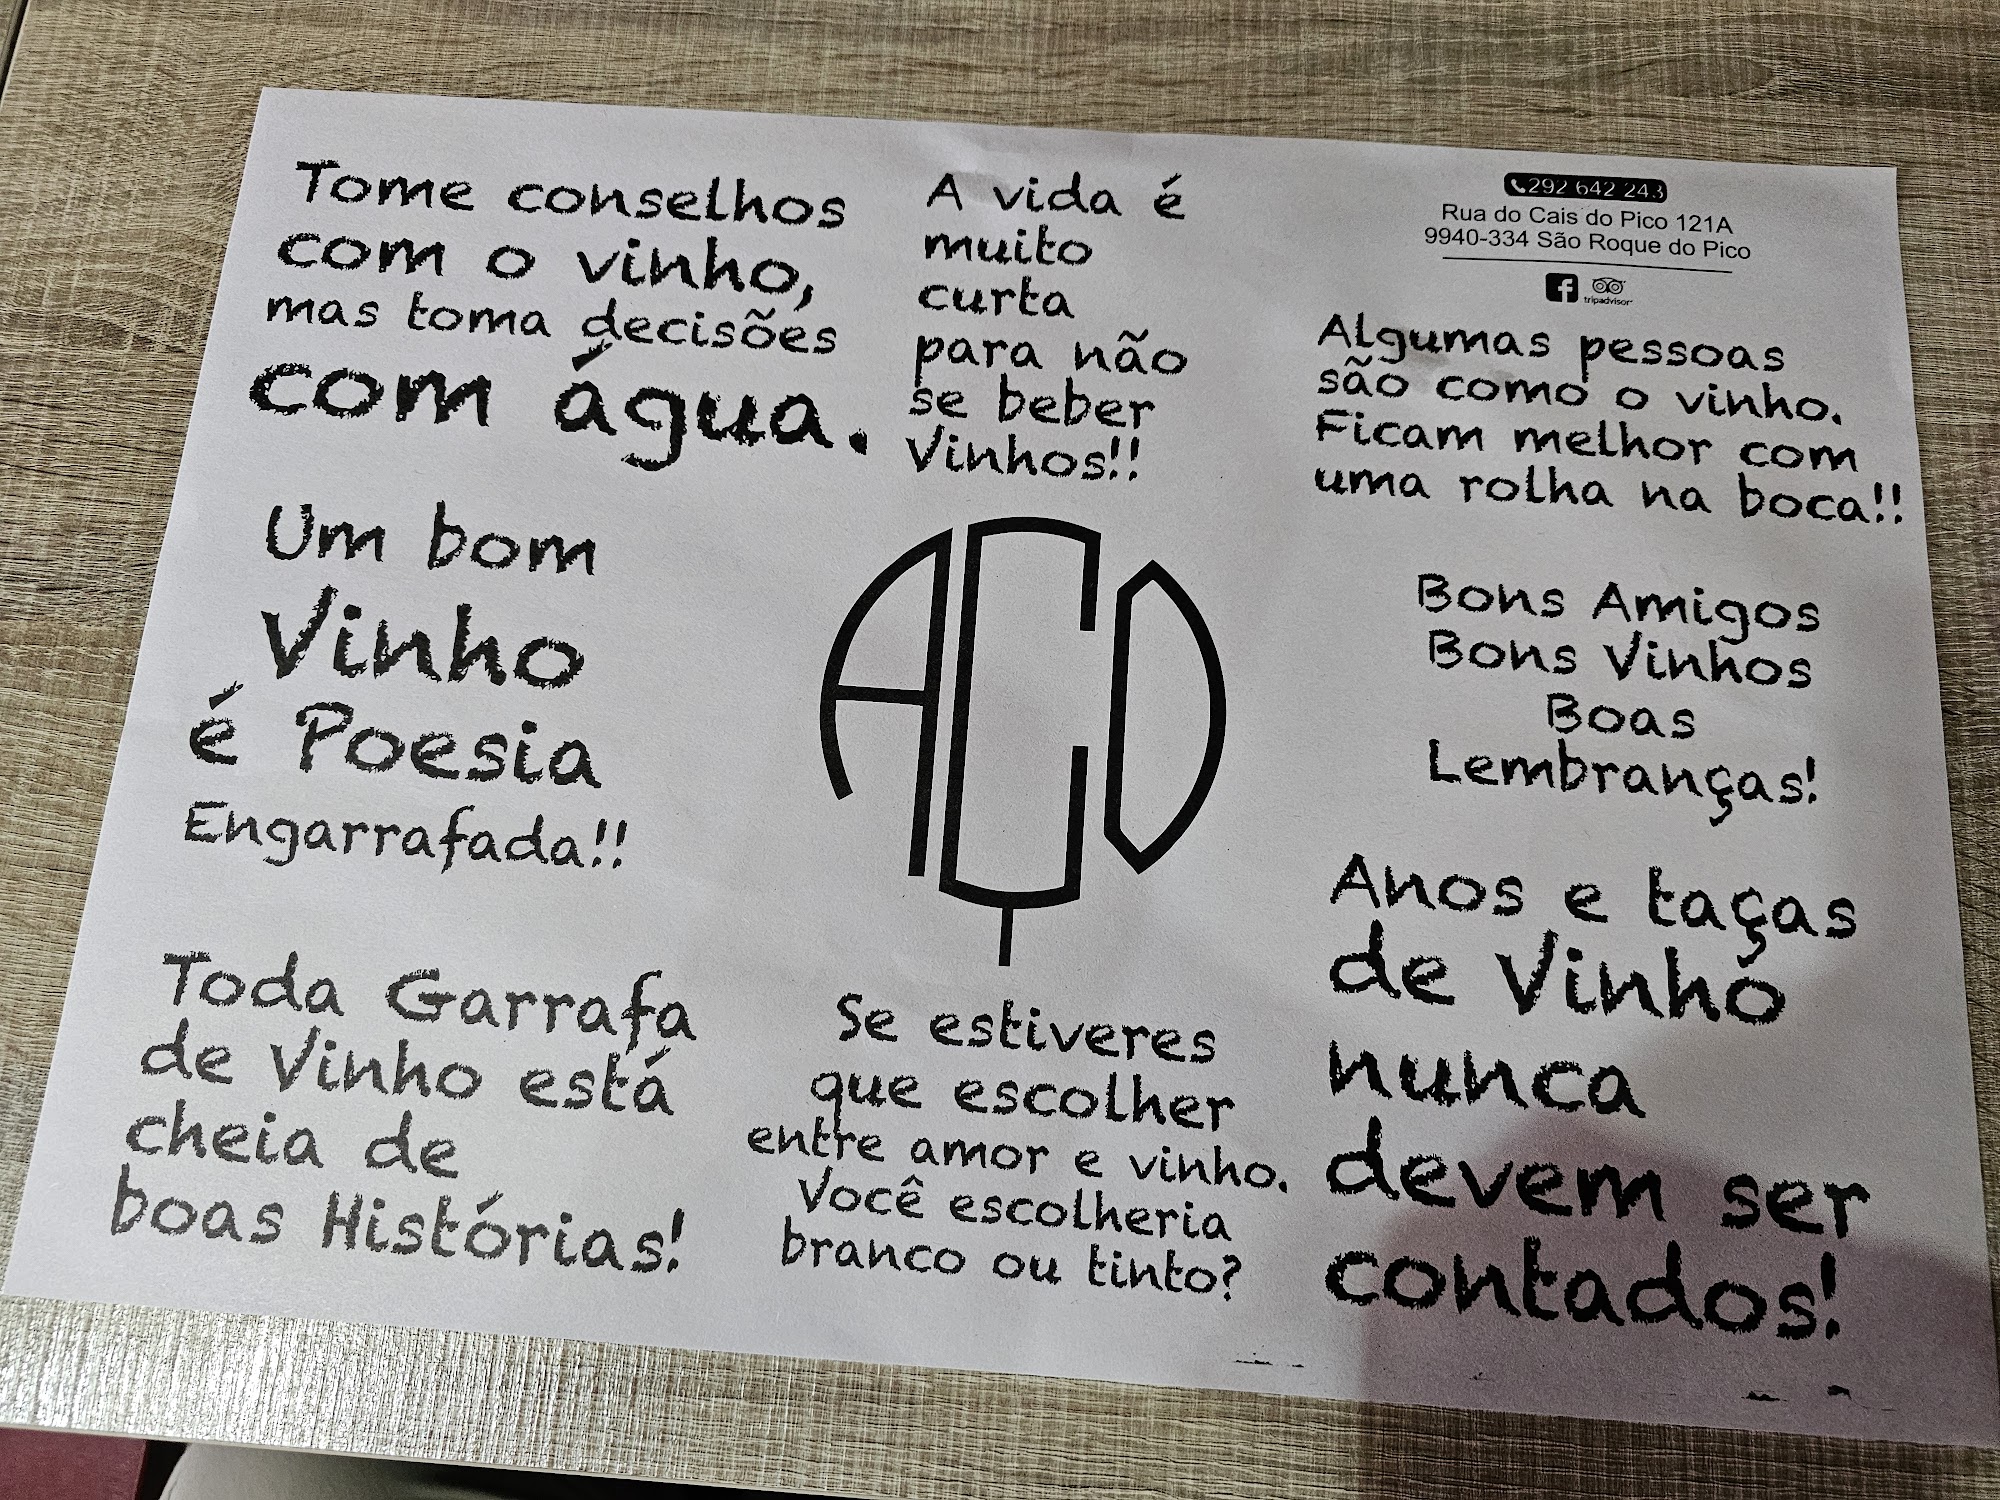 Tome conselhos
com o vinho,
mas toma decisões
com água.
A vida é
muito
curta
para não
se beber
Vinhos!!
292 642 243
Rua do Cais do Pico 121A
9940-334 São Roque do Pico
tripadvisor
Algumas pessoas
são como o vinho.
Ficam melhor com
uma rolha na boca!!
Um bom
Vinho
é Poesia
Engarrafada!!
ACD
Bons Amigos
Bons Vinhos
Boas
Lembranças!
Toda Garrafa
de Vinho está
cheia de
boas Histórias!
Se estiveres
que escolher
entre amor e vinho.
Você escolheria
branco ou tinto?
Anos e taças
de Vinho
nunca
devem ser
contados!